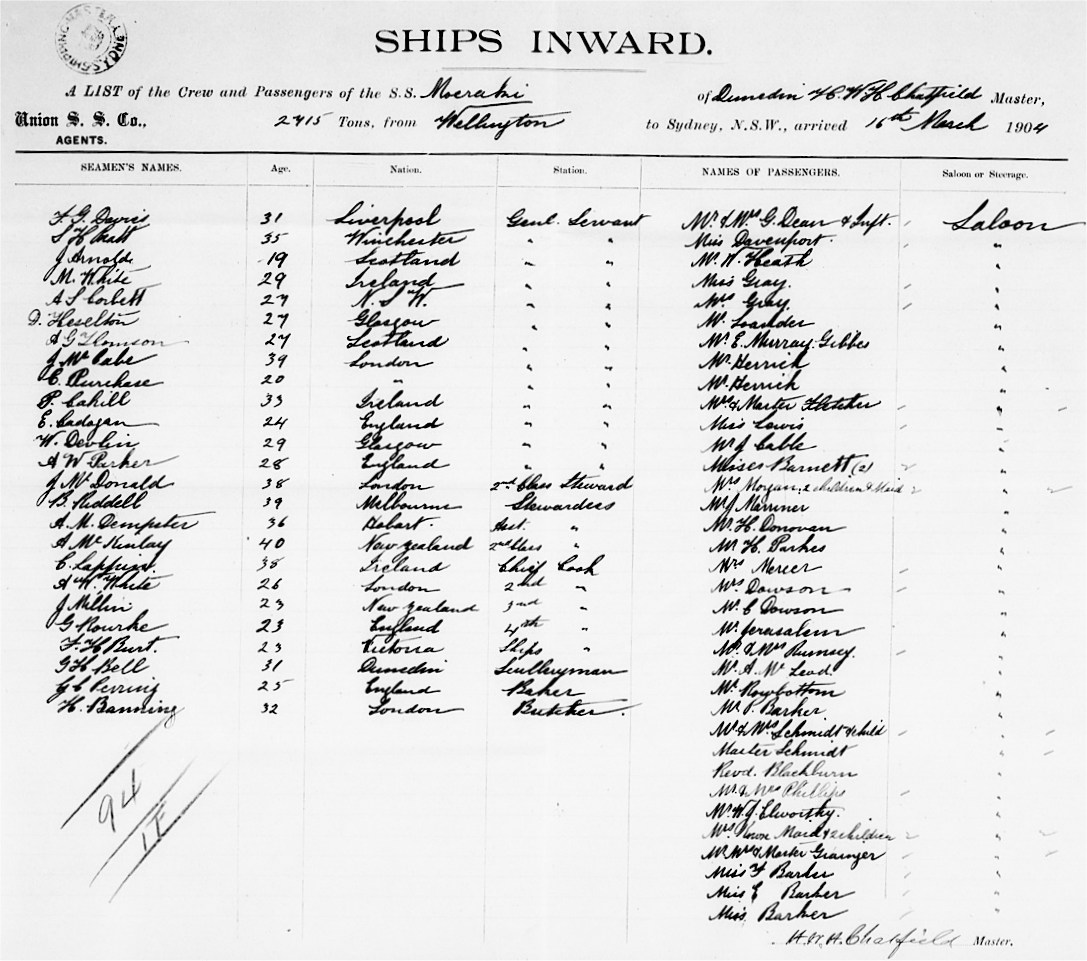 SHIPPING MASTER SYDNEY
SHIPS INWARD.
A LIST of the Crew and Passengers of the S.S. Moeraki of Dunedin H.W.H Chatfield Master,
Union S. S. Co., 2715 Tons, from Wellington to Sydney, N.S.W., arrived 16th March 1904
AGENTS.
SEAMEN'S NAMES. Age. Nation. Station. NAMES OF PASSENGERS. Saloon or Steerage.
F. G. Davis 31 Liverpool Genl. Servant Mr. & Mrs G. Dean & Inft. Saloon
S H Pratt 35 Winchester " " Miss Davenport. "
J Arnold 19 Scotland " " Mr. W. Heath "
M. White 29 Ireland " " Miss Gray. "
A S Corbett 27 N. S. W. " " Mrs Gray. "
D. Heselton 27 Glasgow " " "
A G Thomson 27 Scotland " " Mr. E. Murray. Gibbes "
J. Mc Cabe 39 London " " Mr. Herrick "
E. Purchase 20 " " " Mr. Herrick "
P. Cahill 33 Ireland " " Mrs & Master Fletcher "
E. Cadogan 24 England " " Miss Lewis "
W. Devlin 29 Glasgow " " Mr J Cable "
A W Parker 28 England " " Misses Barnett (2) "
J Mc Donald 38 London 2nd Class Steward Mrs Morgan, 2 children & Maid "
B. Riddell 39 Melbourne Stewardess Mr J Marriner "
A. M. Dempster 36 Hobart. Asst. " Mr. H. Donovan "
A Mc Kinlay 40 New Zealand 2nd Class " Mr H. Parkes "
C. Lappin. 38 Ireland Chief Cook Mrs Mercer "
A W. White 26 London 2nd " Mrs Dowson "
J Millin 23 New Zealand 3rd " Mr. C Dowson "
G Rourke 23 England 4th " Mr. Jerusalem "
F. H Burt. 23 Victoria Ships " Mr. & Mrs Rumsey. "
G H Bell 31 Dunedin Sculleryman Mr. A. Mc Leod. "
G C Perring 25 England Baker Mr. Rowbottom "
H. Banning 32 London Butcher. Mr P. Barker "
Mr & Mrs Schmidt & child "
Master Schmidt "
Revd. Blackburn "
Mr. & Mrs Phillips "
94 Mr. W. J. Elworthy. "
Mrs Maid & 2 children "
Mr. Mrs & Master Grainger "
Miss F Barker "
Miss E Barker "
Miss. Barker "
H. W. H. Chatfield Master.